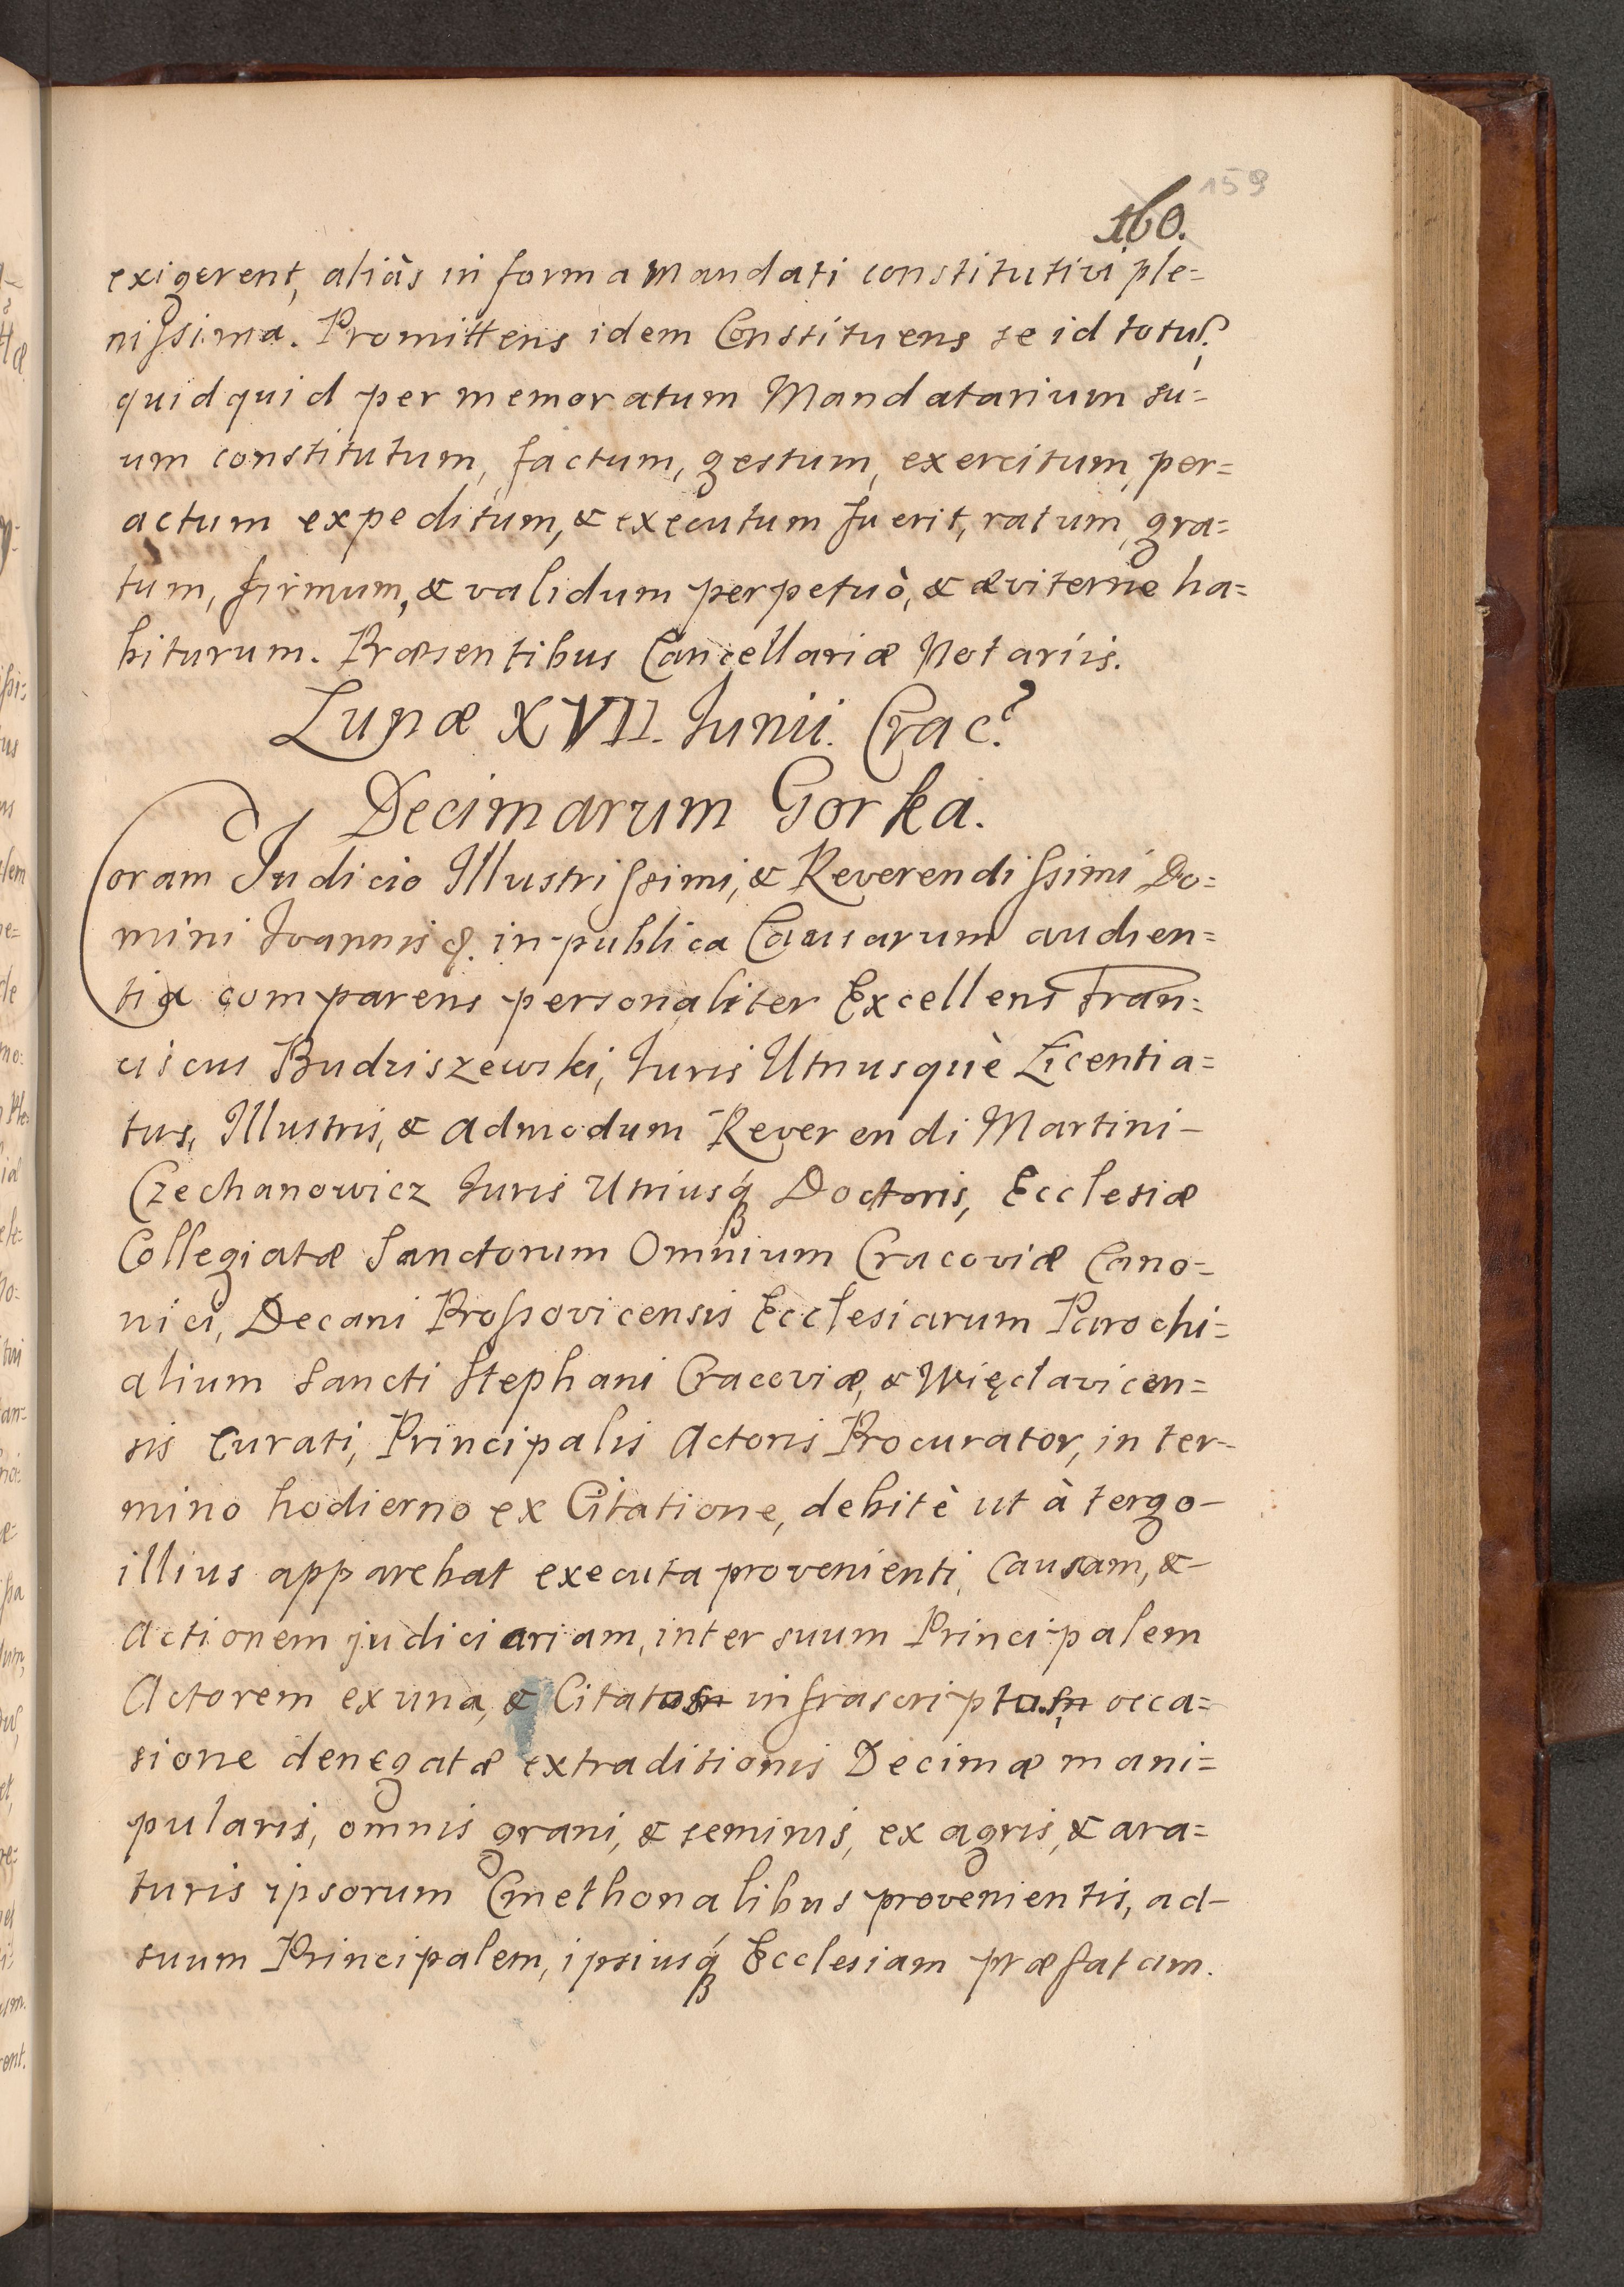 159
160.
exigerent, aliàs in forma Mandati constitutivi ple=
nissima. Promittens idem Constituens se id totum,
quidquid per memoratum Mandatarium su=
um constitutum, factum, gestum, exercitum, per=
actum expeditum, & executum fuerit, ratum, gra=
tum, firmum, & validum perpetuò, & æviternè ha=
biturum. Præsentibus Cancellariæ Notariis.
Lunæ XVII. Junii. Crac.
Decimarum Gorka.
Coram Judicio Illustrissimi, & Reverendissimi Do=
mini Joannis &. in publica Causarum audien=
tia comparens personaliter Excellens Fran=
ciscus Budziszewski, Juris Utriusquè Licentia=
tus, Illustris, & admodum Reverendi Martini
Czechanowicz Juris Utriusq Doctoris, Ecclesiæ
Collegiatæ Sanctorum Omnium Cracoviæ Cano=
nici, Decani Prossovicensis Ecclesiarum Parochi=
alium Sancti Stephani Cracoviæ, & Więclavicen=
sis Curati, Principalis Actoris Procurator, in ter=
mino hodierno ex Citatione, debitè ut à tergo
illius apparebat executa provenienti, Causam, &
Actionem judiciariam, inter suum Principalem
Actorem ex una, & Citatos infrascriptos, occa=
sione denegatæ extraditionis Decimæ mani=
pularis, omnis grani, & seminis, ex agris, & ara=
turis ipsorum Cmethonalibus provenientis, ad
suum Principalem, ipsiusq Ecclesiam præfatam.